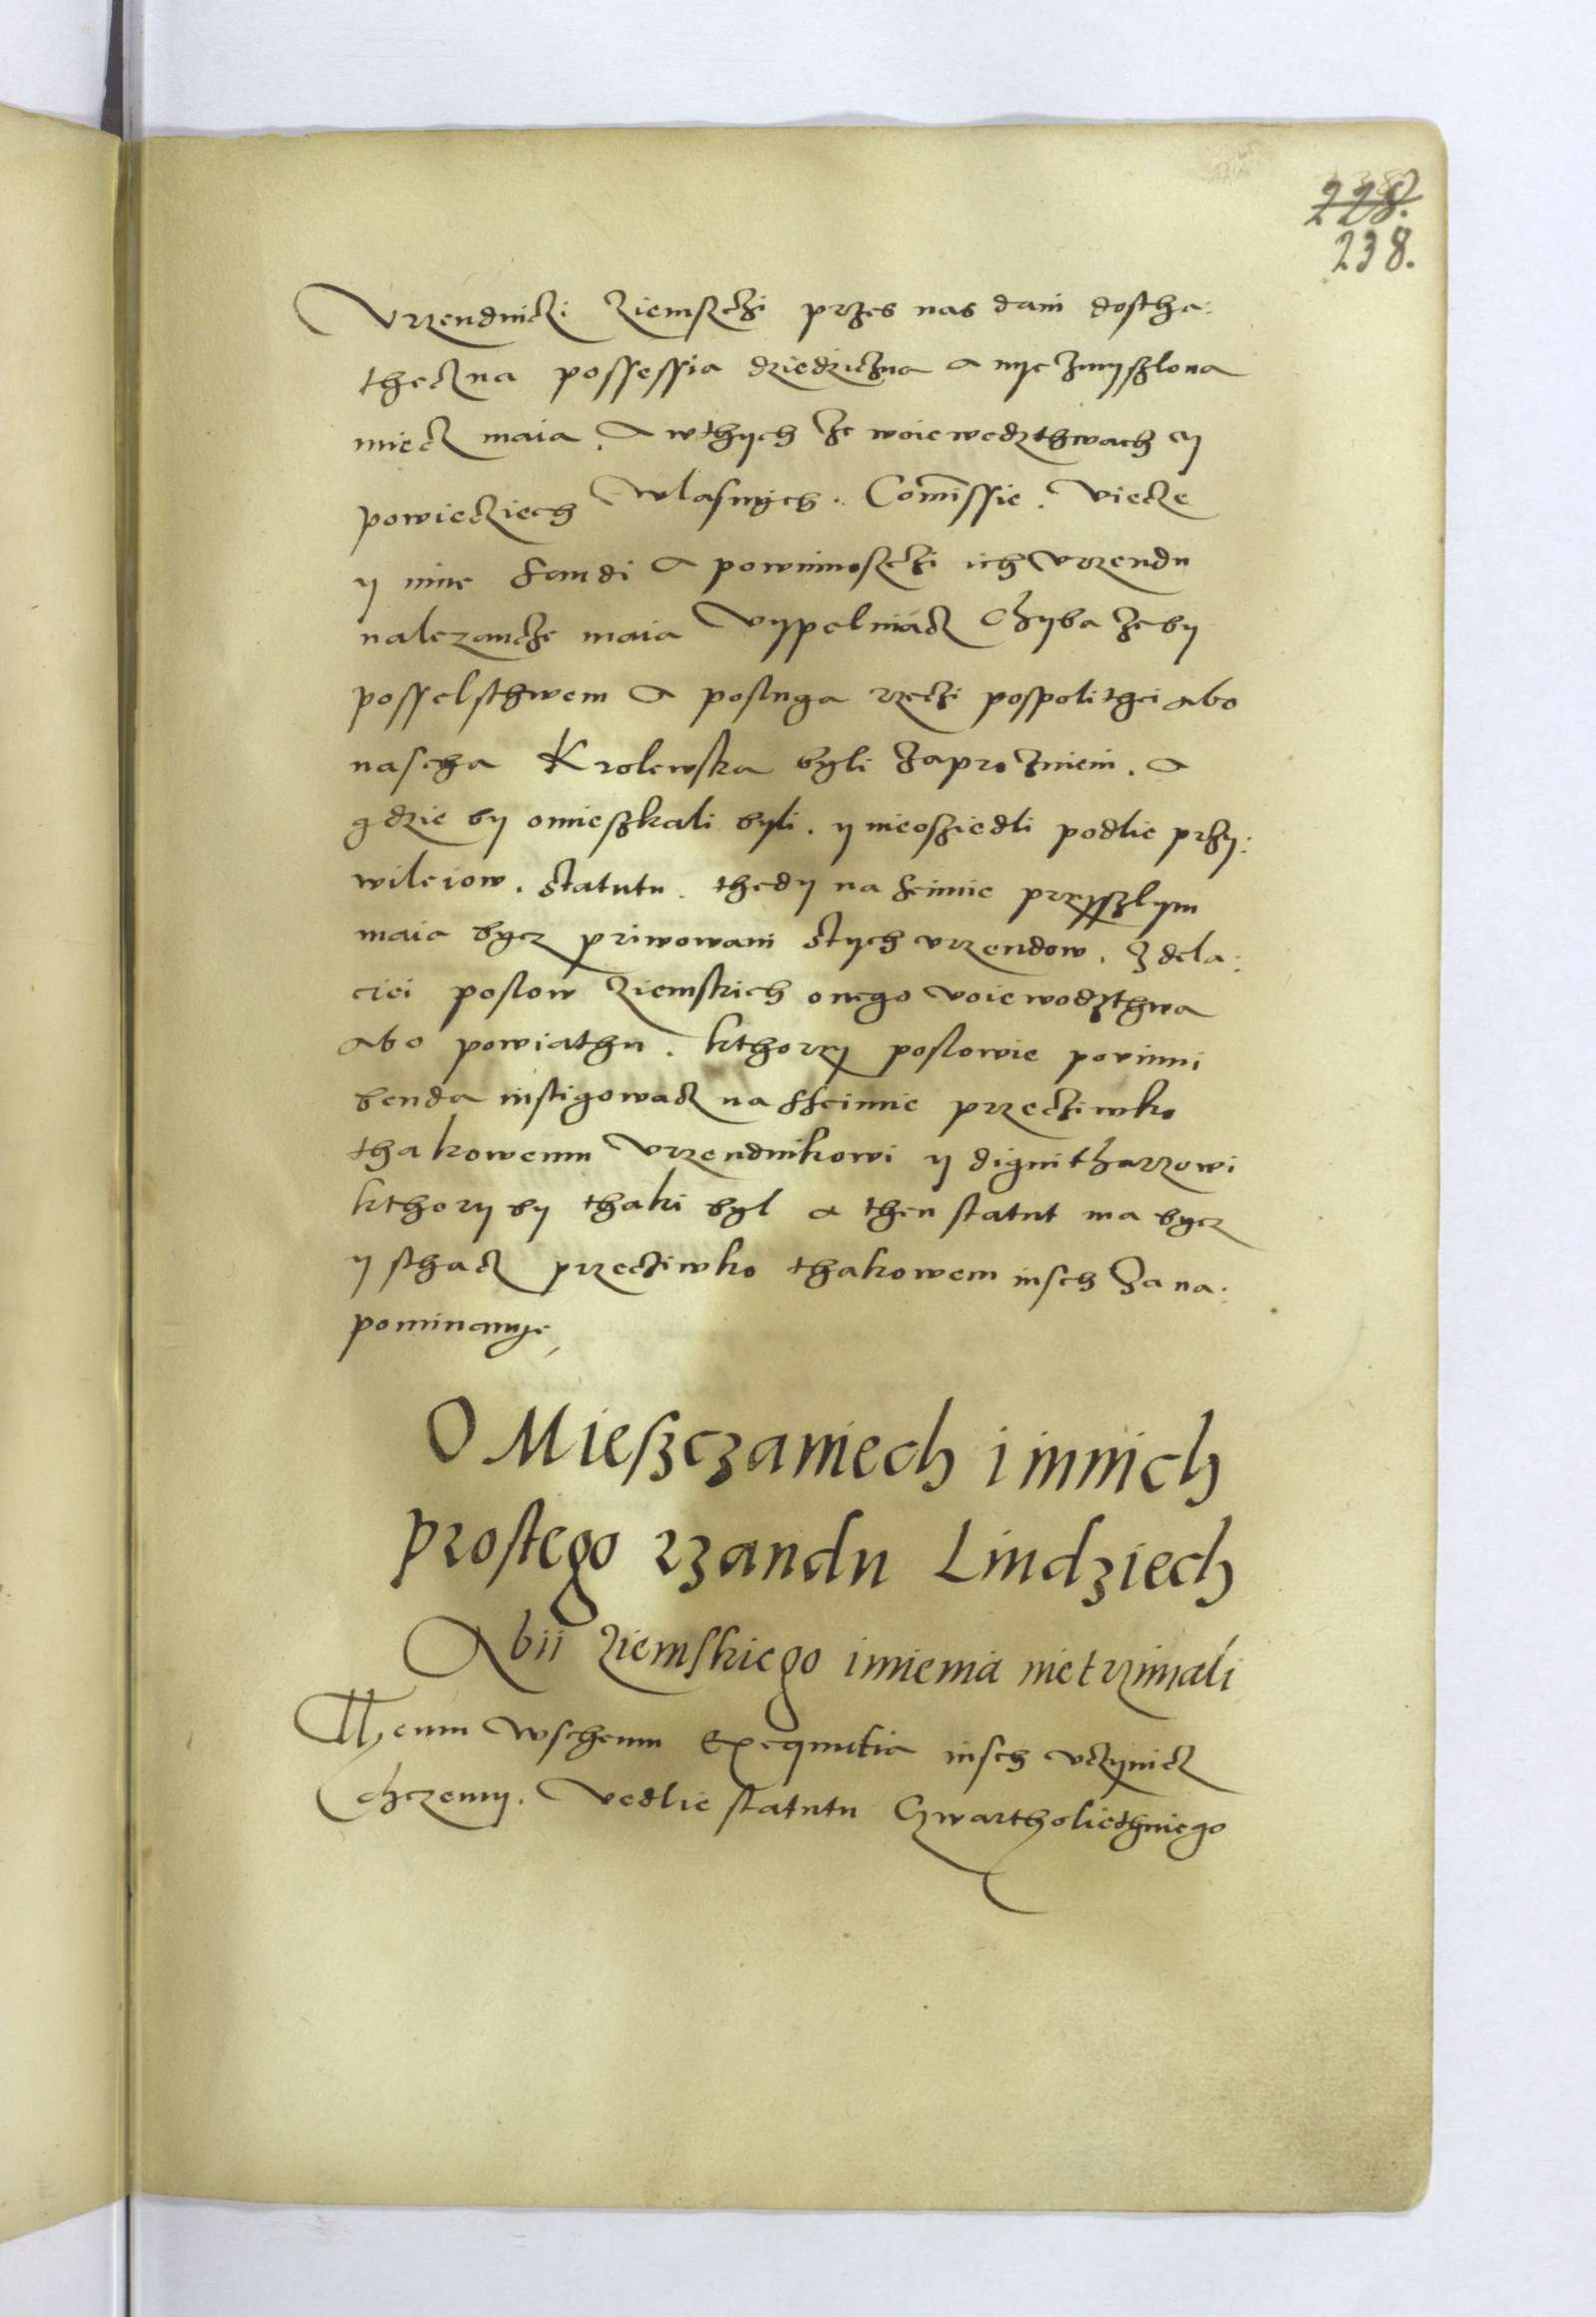 228.
238.
Vrzendniczi Ziemsczi przes nas dani dosthe:
theczna possessia dziedziczna a nye zmyszlona
miecz maia. A wthych ze woiewodzthwach y
powieciech wlasnych. Commissie. Viecze
y inne sandi a powinnosczi ich vrzendu
nalezancze maia Vypelniacz chyba zeby
posselsthwem a posluga rzeczi pospolithei abo
nascha Krolewska byli zaproznieni. a
gdzie by omieszkali byli. y nieosziedli podlie przy:
wileiow. statutu. thedy na seimie przyszlym
maia bycz priwowani stych vrzendow. z dela:
ciei poslow ziemskich onego voiewodzthwa
abo powiathu. kthorzy poslowie povinni
benda instigowacz na sseimie przecziwko
thakowemu Vrzendnikowi y dignitharzowi
kthory by thaki byl a then statut ma bycz
y sthacz przecziwko thakowem insch za na:
pominanye
O Mieszczaniech i innich
prostego rzandu Liudziech
Abii Ziemskiego imienia nietrzimali
Themu wschemu Exequutia insch vczynicz
chczemy. Vedlie statutu Czwartholiethniego